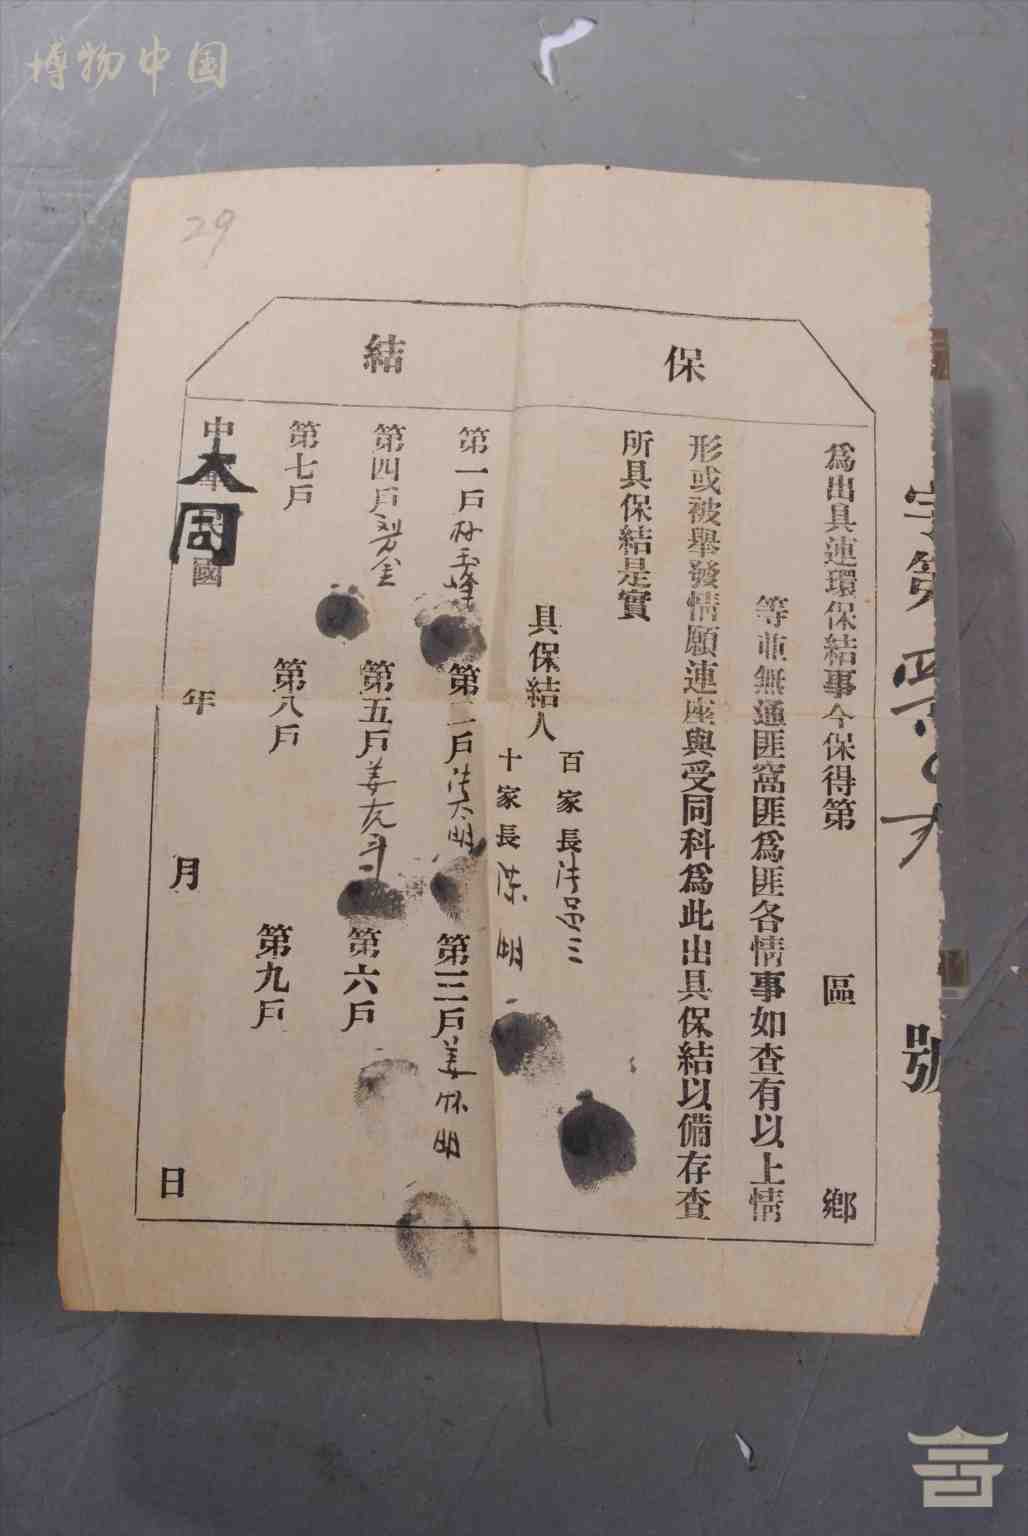 博物中国
29
字第
號
保結
爲出具連環保結事今保得第 區 鄉
等並無通匪窩匪爲匪各情事如查有以上情
形或被舉發情願連座與受同科爲此出具保結以備存查
所具保結是實
具保結人
百家長
十家長
第一戶
第二戶
第三戶
第四戶
第五戶
第六戶
第七戶
第八戶
第九戶
中華民國 年 月 日
大同